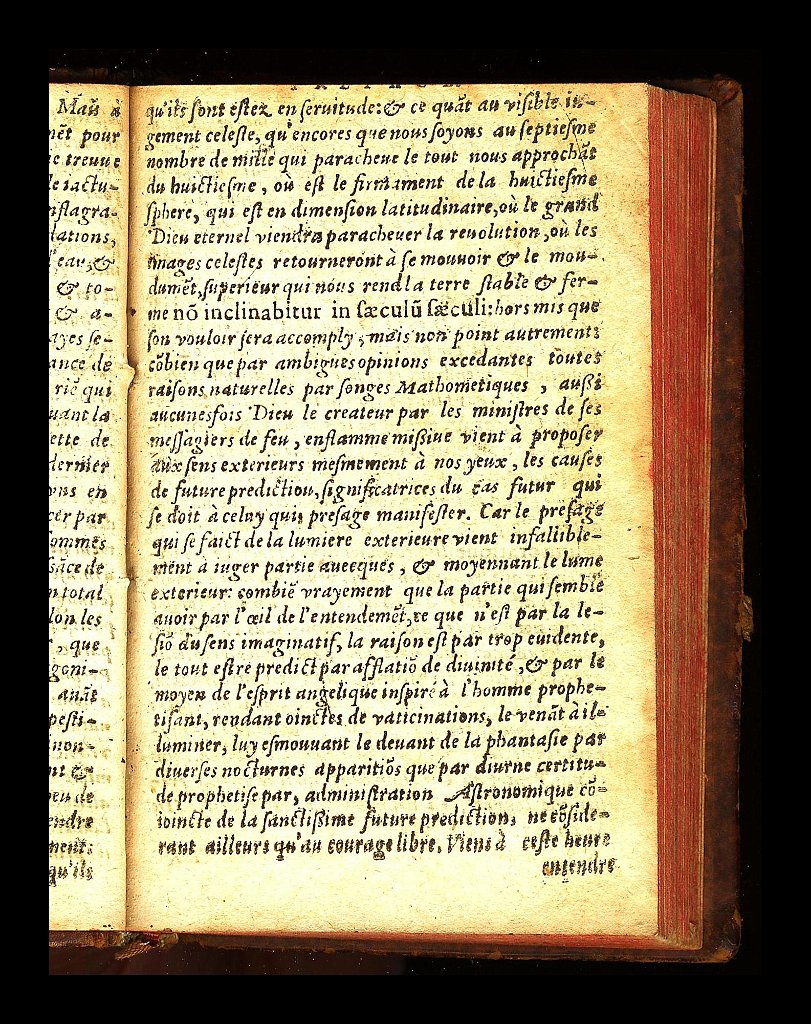 Mais à
mēt pour
se treuve
le iactu-
nflagra-
lations,
l'eau, &
& to-
& a-
ayes se-
ance de
rié qui
uant la
ette de
dernier
vns en
cer par
sommes
sāce de
n total
lon les
, que
goni-
auāt
pesti-
non-
nt &
peu de
endre
ment:
qu'ils
PREFACE.
qu'ils sont estez en seruitude: & ce quāt au visible iu-
gement celeste, qu'encores que nous soyons au septiesme
nombre de mille qui paracheue le tout nous approchāt
du huictiesme, où est le firmament de la huictiesme
sphere, qui est en dimension latitudinaire, où le grand
Dieu eternel viendra paracheuer la reuolution, où les
images celestes retourneront à se mouuoir & le mou-
dumēt, superieur qui nous rend la terre stable & fer-
me nō inclinabitur in sæculū sæculi: hors mis que
son vouloir sera accomply, mais non point autrement:
cōbien que par ambigues opinions excedantes toutes
raisons naturelles par songes Mathometiques, aussi
aucunesfois Dieu le createur par les ministres de ses
messagiers de feu, en flamme missiue vient à proposer
aux sens exterieurs mesmement à nos yeux, les causes
de future prediction, significatrices du cas futur qui
se doit à celuy qui presage manifester. Car le presage
qui se faict de la lumiere exterieure vient infallible-
ment à iuger partie auecques, & moyennant le lume
exterieur: combiē vrayement que la partie qui semble
auoir par l'œil de l'entendemēt, ce que n'est par la le-
siō du sens imaginatif, la raison est par trop euidente,
le tout estre predict par afflatiō de diuinité, & par le
moyen de l'esprit angelique inspiré à l'homme prophe-
tisant, rendant oinctes de vaticinations, le venāt à il-
luminer, luy esmouuant le deuant de la phantasie par
diuerses nocturnes apparitiōs que par diurne certitu-
de prophetise par, administration Astronomique cō-
ioincte de la sanctissime future prediction, ne cōside-
rant ailleurs qu'au courage libre. Viens à ceste heure
entendre